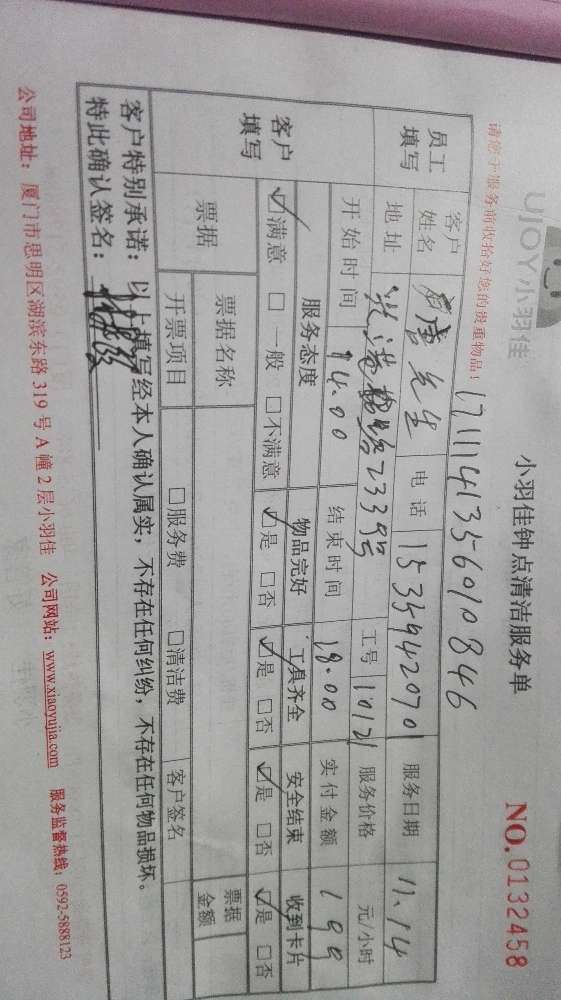 UJOY小羽佳
小羽佳钟点清洁服务单
NO.0132458
请您于服务前收拾好您的贵重物品!
1711141356010846
员工填写
客户姓名 先生 电话 15359420701 服务日期 11.14
地址 239号 工号 10121 服务价格 元/小时
开始时间 14.00 结束时间 18.00 实付金额 199
客户填写
服务态度 物品完好 工具齐全 安全结束 收到卡片
☑满意 □一般 □不满意 ☑是 □否 ☑是 □否 ☑是 □否 ☑是 □否
票据 票据名称 票据金额
开票项目 □服务费 □清洁费 客户签名
客户特别承诺:以上填写经本人确认属实,不存在任何纠纷,不存在任何物品损坏。
特此确认签名:
公司地址:厦门市思明区湖滨东路319号A幢2层小羽佳 公司网站:www.xiaoyujia.com 服务监督热线:0592-5888123